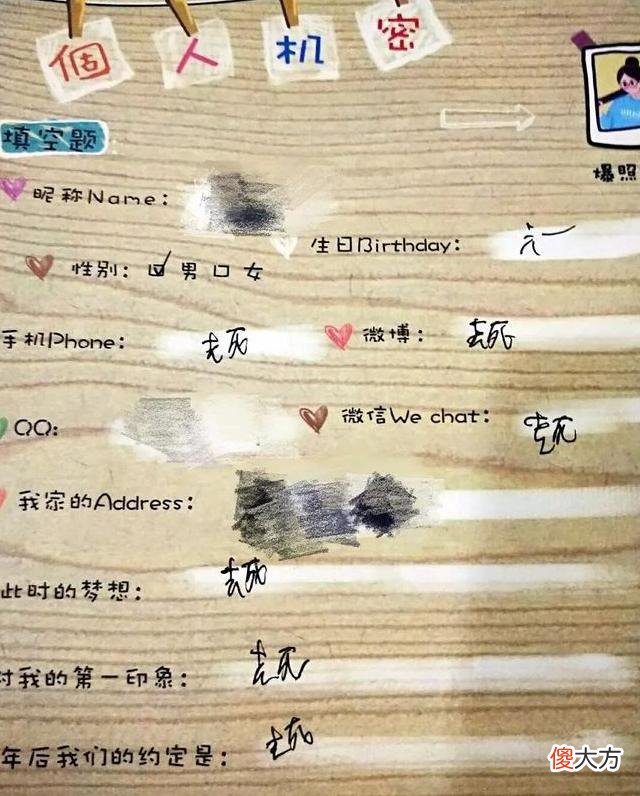 個人机密
填空题
爆照
昵称Name：
生日Birthday：
性别：☑男 口女
手机Phone：去死 微博：去死
QQ： 微信We chat：去死
我家的Address：
此时的梦想：去死
对我的第一印象：去死
年后我们的约定是：去死
傻大方